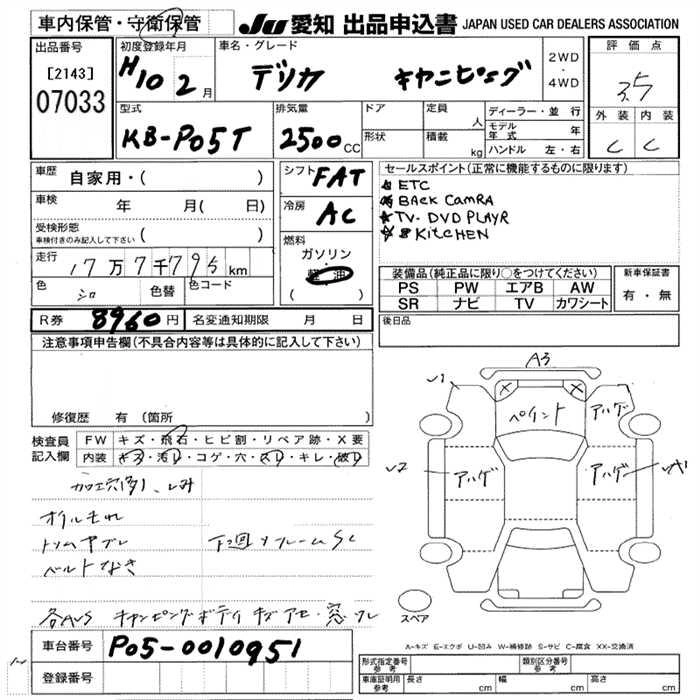 車内保管・守衛保管
JU 愛知 出品申込書 JAPAN USED CAR DEALERS ASSOCIATION
出品番号
[2143]
07033
初度登録年月
H10 2月
車名・グレード
デリカ キャンピング
2WD
・
4WD
評価点
3.5
外装 内装
C C
型式
KB-P05T
排気量
2500cc
ドア
形状
定員 人
積載 kg
ディーラー・並行
モデル年式 年
ハンドル 左・右
車歴 自家用・( )
車検 年 月( 日)
受検形態
車検付きのみ記入して下さい ( )
走行 17万7千795km
色 シロ
色替
色コード
シフト FAT
冷房 AC
燃料
ガソリン
・
軽油
( )
セールスポイント(正常に機能するものに限ります)
ETC
BACK CAMRA
TV-DVD PLAYR
KITCHEN
装備品(純正品に限り○をつけてください)
PS PW エアB AW
SR ナビ TV カワシート
新車保証書
有・無
R券 8960円
名変通知期限 月 日
後日品
注意事項申告欄(不具合内容等は具体的に記入して下さい)
修復歴 有(箇所
検査員
記入欄
FW キズ・飛石・ヒビ割・リペア跡・X要
内装 キズ・汚レ・コゲ・穴・スレ・キレ・破レ
オイルモれ
下回りフレームSC
ベルトなさ
各AUS キャンピングボディ キズ アセ・窓ワレ
A3
ペイント
アハゲ
アハゲ
アハゲ
スペア
A-キズ E-エクボ U-凹み W-補修跡 S-サビ C-腐食 XX-交換済
車台番号 P05-0010951
登録番号
型式指定番号
参考
類別区分番号
参考
車庫証明用
参考
長さ cm
幅 cm
高さ cm